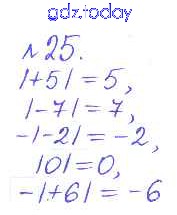 gdz.today
№25.
|+5|=5,
|-7|=7,
-|-2|=-2,
|0|=0,
-|+6|=-6